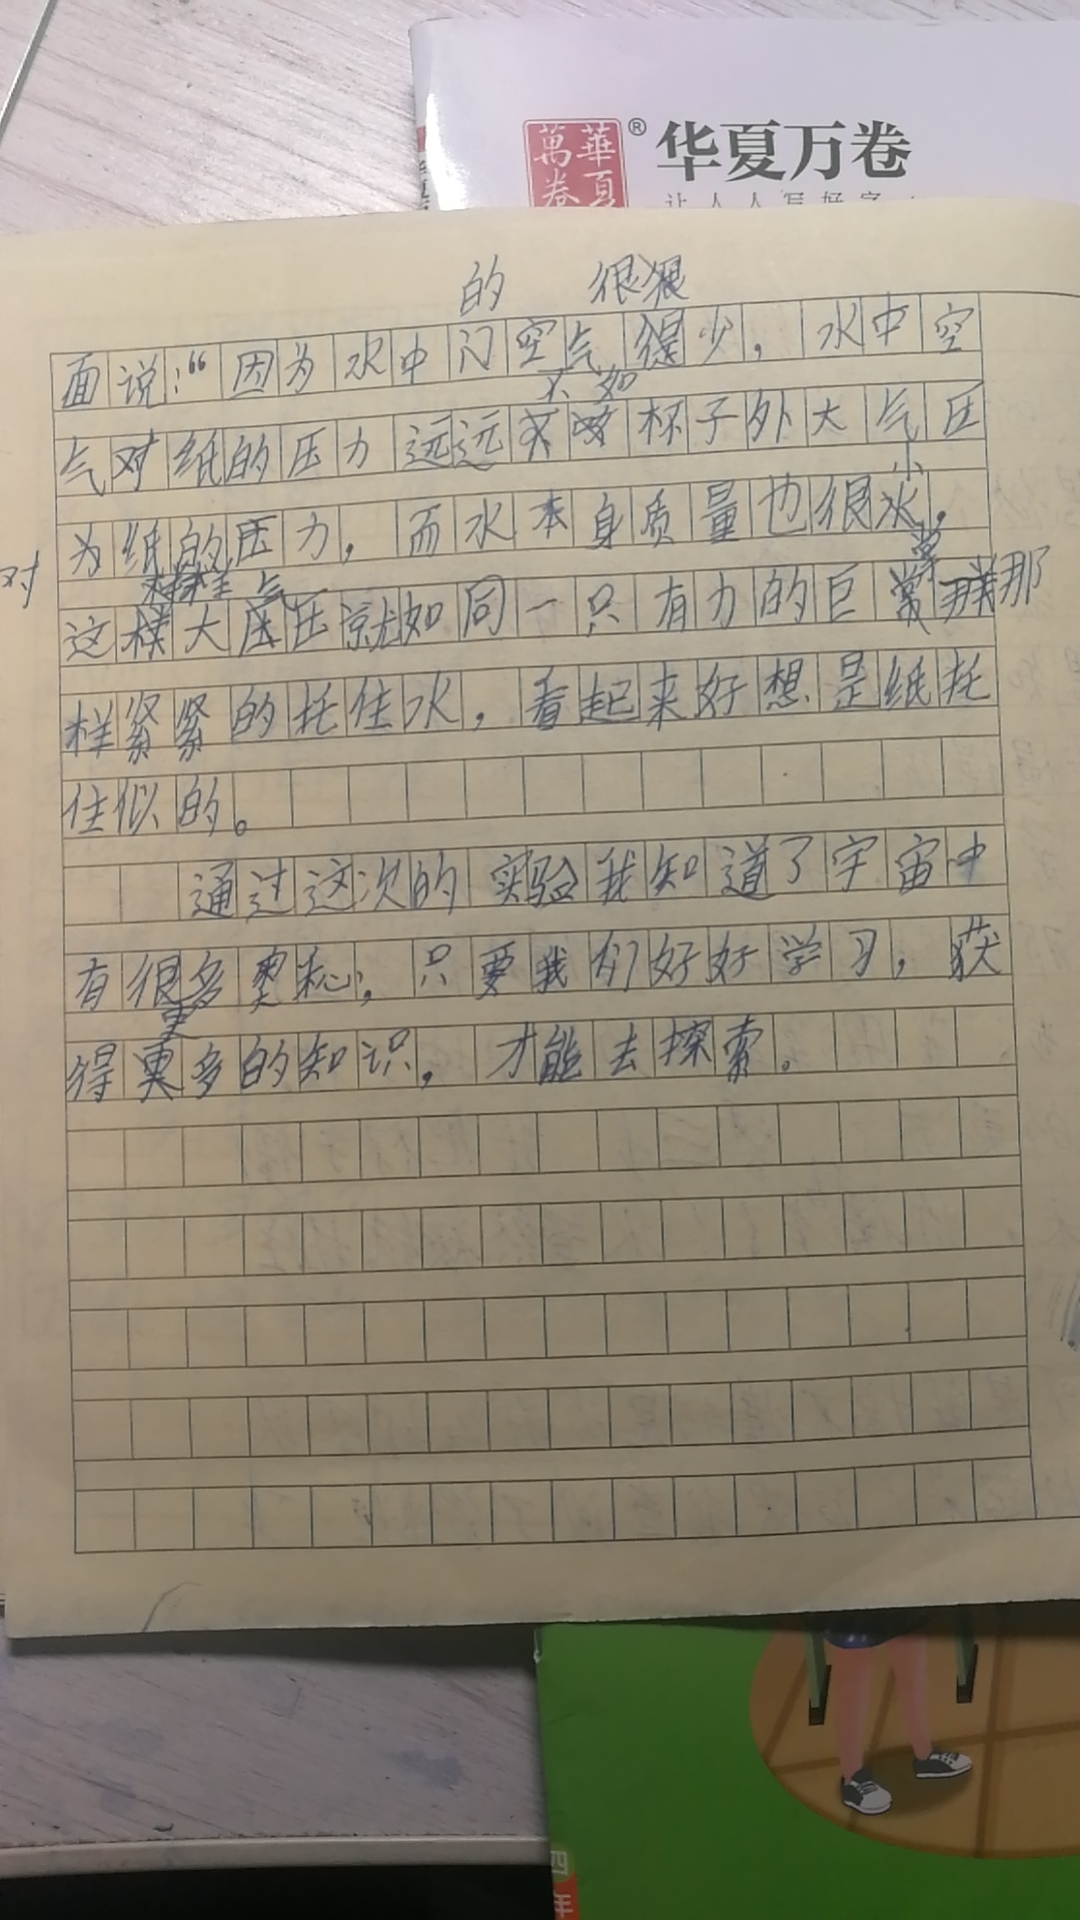 萬華
卷夏
®华夏万卷
让人人写好字
的 很狠
面说：“因为水中闪空气很少，水中空
不如
气对纸的压力远远杯子外大气压
小
为纸的压力，而水本身质量也很，
对
样 气 掌
这大压就如同一只有力的巨那
样紧紧的托住水，看起来好想是纸托
住似的。
通过这次的实验我知道了宇宙中
有很多奥秘，只要我们好好学习，获
更
得多的知识，才能去探索。
四年